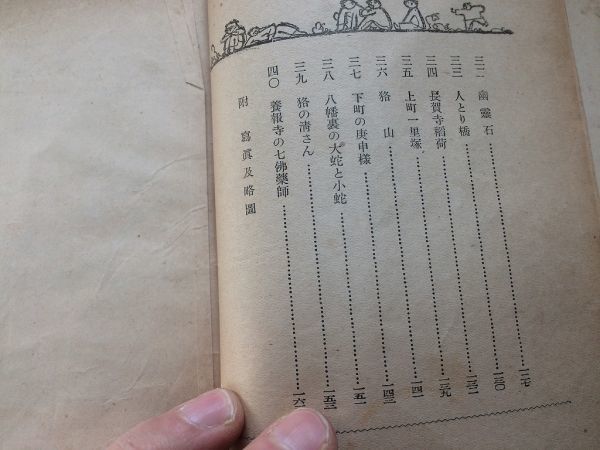 三二 幽靈石 一二七
三三 人とり橋 一三〇
三四 長賀寺稻荷 一三二
三五 上町一里塚 一三九
三六 狢山 一四一
三七 下町の庚申樣 一四三
三八 八幡裏の大蛇と小蛇 一五一
三九 狢の淸さん 一五三
四〇 養報寺の七佛藥師 一六一
附 寫眞及略圖